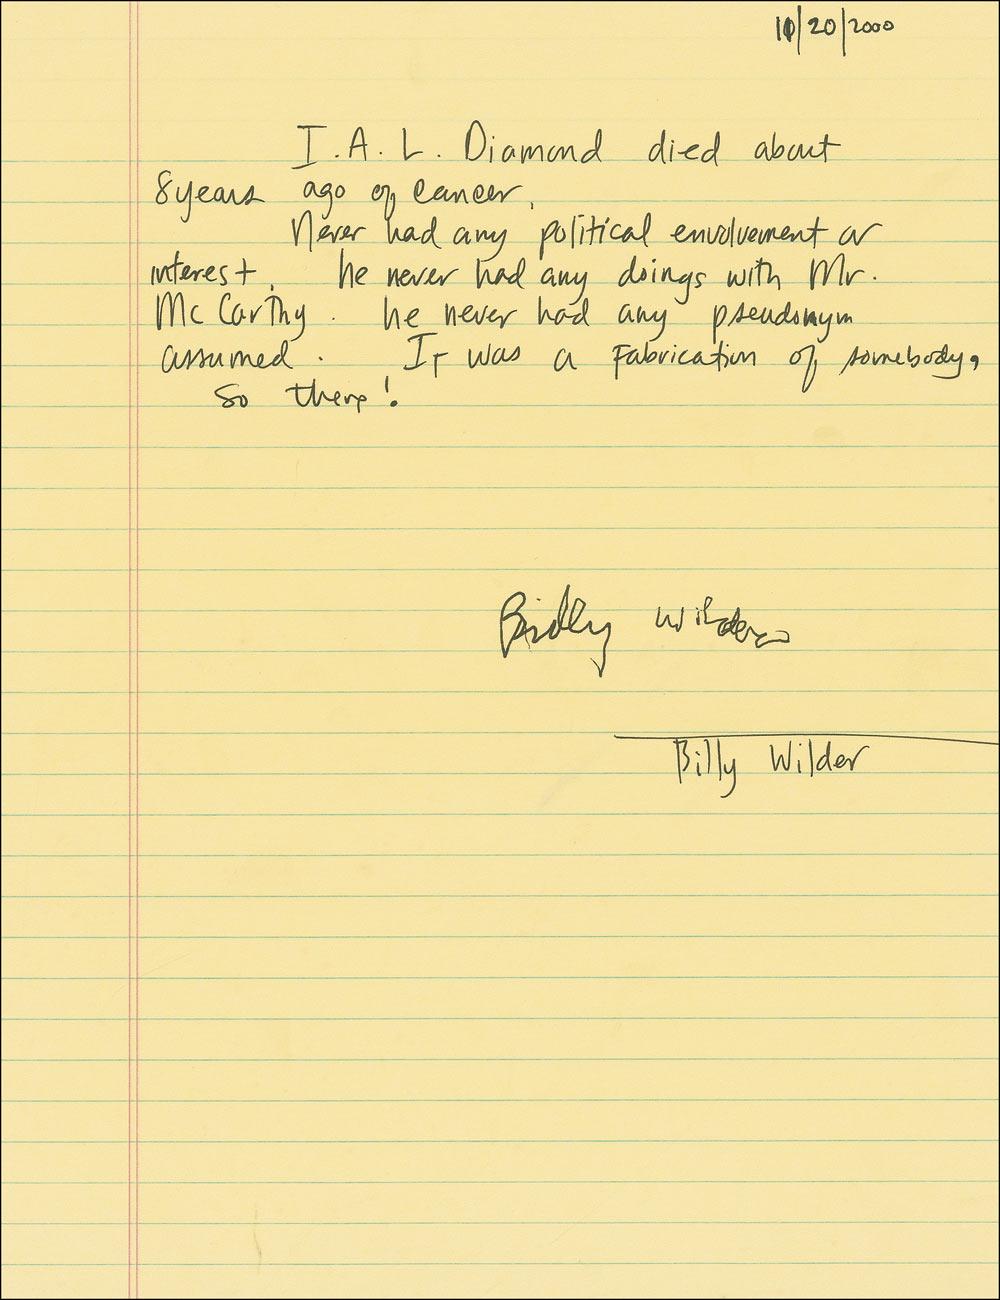 10/20/2000
I.A.L. Diamond died about
8 years ago of cancer.
Never had any political envolvement or
interest. he never had any doings with Mr.
McCarthy. he never had any pseudonym
assumed. It was a Fabrication of somebody,
So there!
Billy Wilder
Billy Wilder